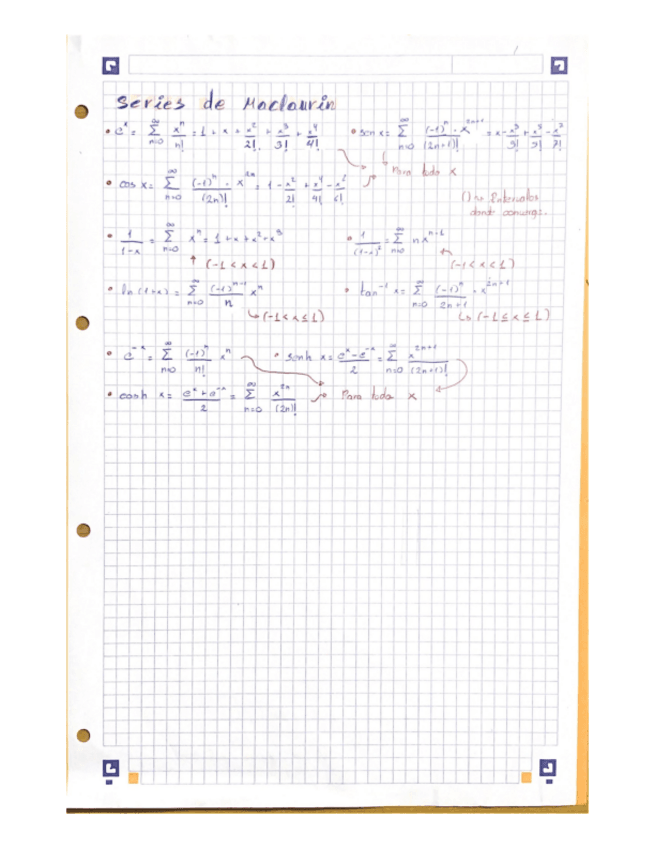 Series de Maclaurin
• e^x = ∑_{n=0}^∞ x^n/n! = 1 + x + x^2/2! + x^3/3! + x^4/4!
• sen x = ∑_{n=0}^∞ (-1)^n/(2n+1)! · x^{2n+1} = x - x^3/3! + x^5/5! - x^7/7!
Para todo x
• cos x = ∑_{n=0}^∞ (-1)^n/(2n)! · x^{2n} = 1 - x^2/2! + x^4/4! - x^6/6!
() => Intervalos
donde converge.
• 1/(1-x) = ∑_{n=0}^∞ x^n = 1 + x + x^2 + x^3
• 1/(1-x)^2 = ∑_{n=0}^∞ n x^{n-1}
(-1 < x < 1)
(-1 < x < 1)
• ln(1+x) = ∑_{n=0}^∞ (-1)^{n-1}/n x^n
• tan^{-1} x = ∑_{n=0}^∞ (-1)^n/(2n+1) · x^{2n+1}
(-1 < x ≤ 1)
(-1 ≤ x ≤ 1)
• e^{-x} = ∑_{n=0}^∞ (-1)^n/n! x^n
• senh x = (e^x - e^{-x})/2 = ∑_{n=0}^∞ x^{2n+1}/(2n+1)!
• cosh x = (e^x + e^{-x})/2 = ∑_{n=0}^∞ x^{2n}/(2n)!
Para todo x